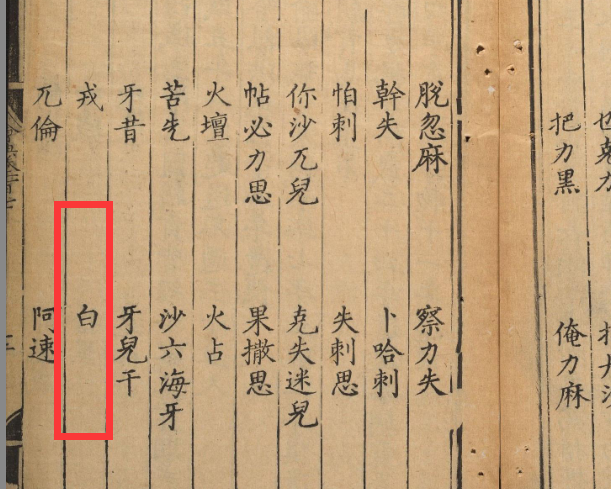 把力黑 俺力麻
脫忽麻 察力失
幹失 卜哈刺
怕刺 失刺思
你沙兀兒 克失迷兒
帖必力思 果撒思
火壇 火占
苦先 沙六海牙
牙昔 牙兒干
戎 白
兀倫 阿速